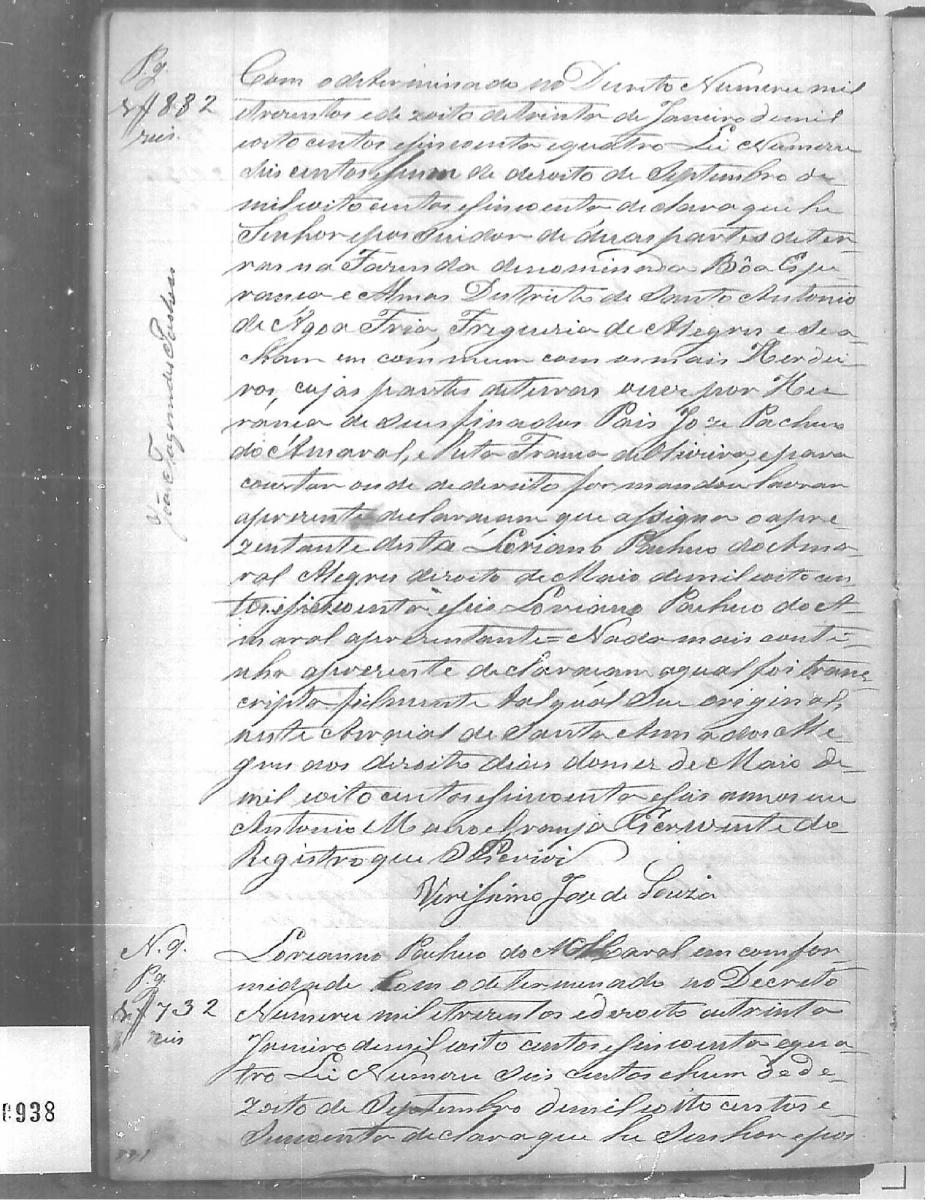 Pg.
882
reis
Com o determinado no Decreto Numero mil
etrezentos edezoito detrinta de Janeiro demil
oito centos esincoenta equatro Lei Numero
Seis centos ehum de dezoito de Septembro de
mil oito centos esincoenta declara que he
Senhor epossuidor de duas partes de ter
ras na Fazenda denominada Bôa Espe
ranca e Almas Districto de Santo Antonio
de Agoa Fria, Freguezia de Alegres e se a
cham em commum com os mais Herdei
ros, cujas partes deterras ouve por He
ránca de seus finados Pais Joze Pacheco
do Amaral, e Rita Franca de Oliveira, epara
constar onde dedereito for mandou lavrar
aprezente declaracam que assigna o apre
zentante desta Loriano Pacheco do Ama
ral Alegres dezoito de Maio demil oito cen
tos esincoenta eseis Loriano Pacheco do A
maral aprezentante = Nada mais conti
nha aprezente declaracam aqual foi trans
cripta fielmente tal qual Seu original,
neste Arraial de Santa Anna dos Ale
gres aos dezoito dias domez de Maio de
mil oito centos esincoenta eseis annos eu
Antonio Granja Escrevente do
Registro que O Escrivi
Virissimo Jose de Souza
João Fagundes
N. 9
Pg.
732
reis
Lorianno Pacheco do Amaral em comfor
midade Com o determinado no Decreto
Numero mil etrezentos edezoito detrinta
Janeiro demil oito centos esincoenta equa
tro Lei Numero Seis centos ehum de de
zoito de Septembro demil oito centos e
Sincoenta declara que he Senhor epos
0938